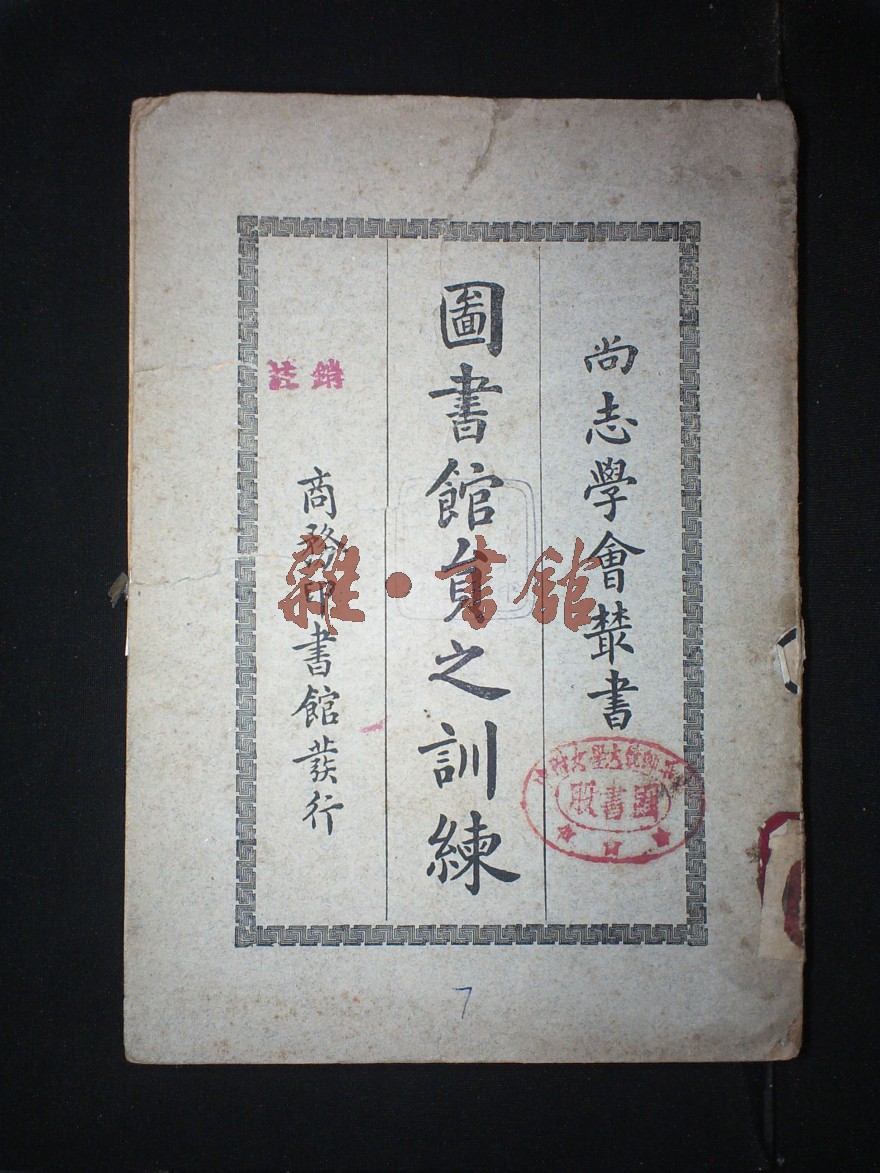 尚志學會叢書
圕書館員之訓練
商務印書館發行
註銷
雜·書館
圖書股
7